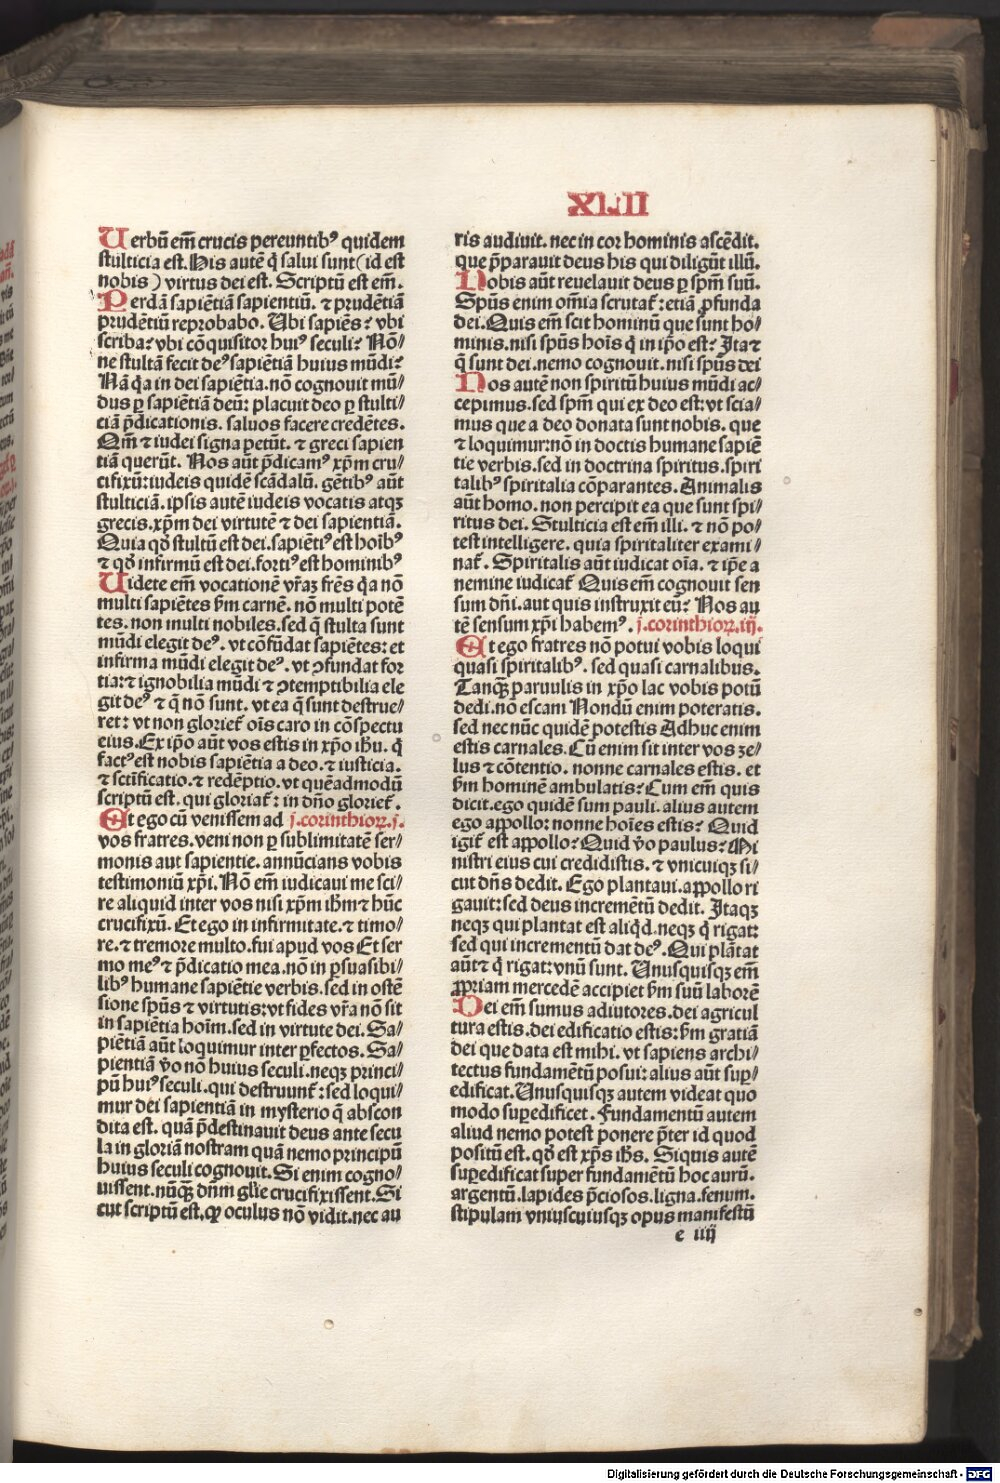 XLII
Uerbū em̄ crucis pereuntibꝰ quidem
stulticia est. His autē q̄ salui sunt (id est
nobis) virtus dei est. Scriptū est em̄.
Perdā sapiētiā sapientiū. ⁊ prudētiā
prudētiū reprobabo. Ubi sapiēs? vbi
scriba? vbi cōquisitor huiꝰ seculi? Nō⸗
ne stultā fecit deꝰ sapiētiā huius mūdi?
Nā q̇a in dei sapiētia. nō cognouit mū⸗
dus ꝑ sapiētiā deū: placuit deo ꝑ stulti⸗
ciā p̄dicationis. saluos facere credētes.
Qm̄ ⁊ iudei signa petūt. ⁊ greci sapien
tiā querūt. Nos aūt p̄dicamꝰ xp̄m cru⸗
cifixū: iudeis quidē scādalū. gētibꝰ aūt
stulticiā. ipsis autē iudeis vocatis atqꝫ
grecis. xp̄m dei virtutē ⁊ dei sapientiā.
Quia qđ stultū est dei. sapiētiꝰ est hoībꝰ
⁊ qđ infirmū est dei. fortiꝰ est hominibꝰ
Uidete em̄ vocationē vr̄aꝫ fr̄es q̇a nō
multi sapiētes ẜm carnē. nō multi potē
tes. non multi nobiles. sed q̄ stulta sunt
mūdi elegit deꝰ. vt cōfūdat sapiētes: et
infirma mūdi elegit deꝰ. vt ↄfundat for
tia: ⁊ ignobilia mūdi ⁊ ↄtemptibilia ele
git deꝰ ⁊ q̄ nō sunt. vt ea q̄ sunt destrue⸗
ret: vt non glorieť oīs caro in cōspectu
eius. Ex ip̄o aūt vos estis in xp̄o ih̄u. q̇
factꝰ est nobis sapiētia a deo. ⁊ iusticia.
⁊ sctīficatio. ⁊ redēptio. vt quēadmodū
scriptū est. qui gloriať: in dn̄o glorieť.
Et ego cū venissem ad j. corinthioꝝ. j.
vos fratres. veni non ꝑ sublimitatē ser⸗
monis aut sapientie. annūcians vobis
testimoniū xp̄i. Nō em̄ iudicaui me sci⸗
re aliquid inter vos nisi xp̄m ih̄m ⁊ hūc
crucifixū. Et ego in infirmitate. ⁊ timo⸗
re. ⁊ tremore multo. fui apud vos Et ser
mo meꝰ ⁊ p̄dicatio mea. nō in ꝑsuasibi⸗
libꝰ humane sapiētie verbis. sed in ostē
sione sp̄us ⁊ virtutis: vt fides vr̄a nō sit
in sapiētia hoīm. sed in virtute dei. Sa⸗
piētiā aūt loquimur inter ꝑfectos. Sa⸗
pientiā v̄o nō huius seculi. neqꝫ princi⸗
pū huiꝰ seculi. qui destruunť: sed loqui⸗
mur dei sapientiā in mysterio q̄ abscon
dita est. quā p̄destinauit deus ante secu
la in gloriā nostram quā nemo principū
huius seculi cognouit. Si enim cogno⸗
uissent. nūq̄ꝫ dn̄m gl̄ie crucifixissent. Si
cut scriptū est. ꝙ oculus nō vidit. nec au
ris audiuit. nec in cor hominis ascēdit.
que p̄parauit deus his qui diligūt illū.
Nobis aūt reuelauit deus ꝑ sp̄m suū.
Sp̄us enim om̄ia scrutať: etiā ꝓfunda
dei. Quis em̄ scit hominū que sunt ho⸗
minis. nisi sp̄us hoīs q̇ in ip̄o est? Ita ⁊
q̄ sunt dei. nemo cognouit. nisi sp̄us dei
Nos autē non spiritū huius mūdi ac⸗
cepimus. sed sp̄m qui ex deo est: vt scia⸗
mus que a deo donata sunt nobis. que
⁊ loquimur: nō in doctis humane sapiē
tie verbis. sed in doctrina spiritus. spiri
talibꝰ spiritalia cōparantes. Animalis
aūt homo. non percipit ea que sunt spi⸗
ritus dei. Stulticia est em̄ illi. ⁊ nō po⸗
test intelligere. quia spiritaliter exami⸗
nať. Spiritalis aūt iudicat oīa. ⁊ ip̄e a
nemine iudicať Quis em̄ cognouit sen
sum dn̄i. aut quis instruxit eū? Nos au
tē sensum xp̄i habemꝰ. j. corinthioꝝ. iij.
Et ego fratres nō potui vobis loqui
quasi spiritalibꝰ. sed quasi carnalibus.
Tanq̄ꝫ paruulis in xp̄o lac vobis potū
dedi. nō escam Nondū enim poteratis.
sed nec nūc quidē potestis Adhuc enim
estis carnales. Cū enim sit inter vos ze⸗
lus ⁊ cōtentio. nonne carnales estis. et
ẜm hominē ambulatis? Cum em̄ quis
dicit. ego quidē sum pauli. alius autem
ego appollo: nonne hoīes estis? Quid
igiť est appollo? Quid v̄o paulus? Mi
nistri eius cui credidistis. ⁊ vnicuiqꝫ si⸗
cut dn̄s dedit. Ego plantaui. appollo ri
gauit: sed deus incremētū dedit. Itaqꝫ
neqꝫ qui plantat est aliq̇d. neqꝫ q̇ rigat:
sed qui incrementū dat deꝰ. Qui plātat
aūt ⁊ q̇ rigat: vnū sunt. Unusquisqꝫ em̄
ꝓpriam mercedē accipiet ẜm suū laborē
Dei em̄ sumus adiutores. dei agricul
tura estis. dei edificatio estis: ẜm gratiā
dei que data est mihi. vt sapiens archi⸗
tectus fundamētū posui: alius aūt suꝑ⸗
edificat. Unusquisqꝫ autem videat quo
modo suꝑedificet. Fundamentū autem
aliud nemo potest ponere p̄ter id quod
positū est. qđ est xp̄s ih̄s. Siquis autē
suꝑedificat super fundamētū hoc aurū.
argentū. lapides p̄ciosos. ligna. fenum.
stipulam vniuscuiusqꝫ opus manifestū
e iiij
Digitalisierung gefördert durch die Deutsche Forschungsgemeinschaft - DFG